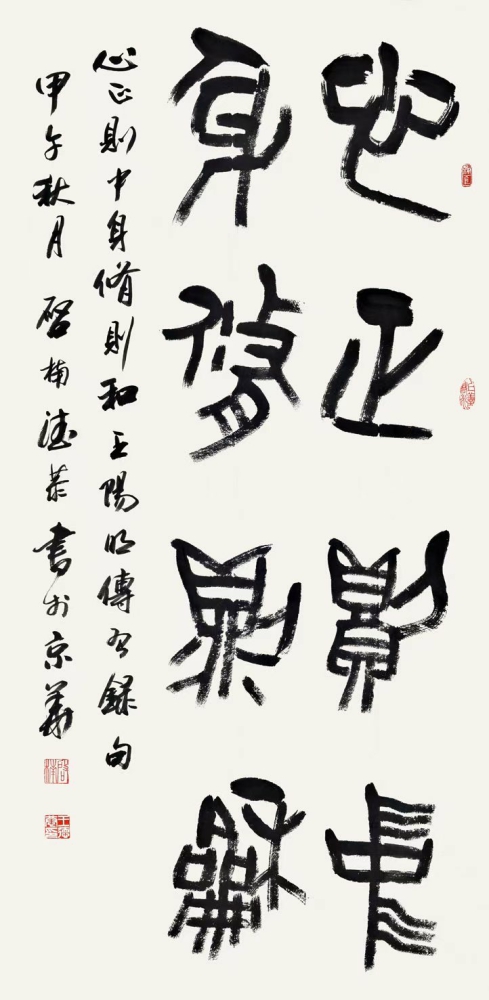 心正則中
身脩則龢
心正則中身脩則和王陽明傳習錄句
甲午秋月啓楠德恭書於京華